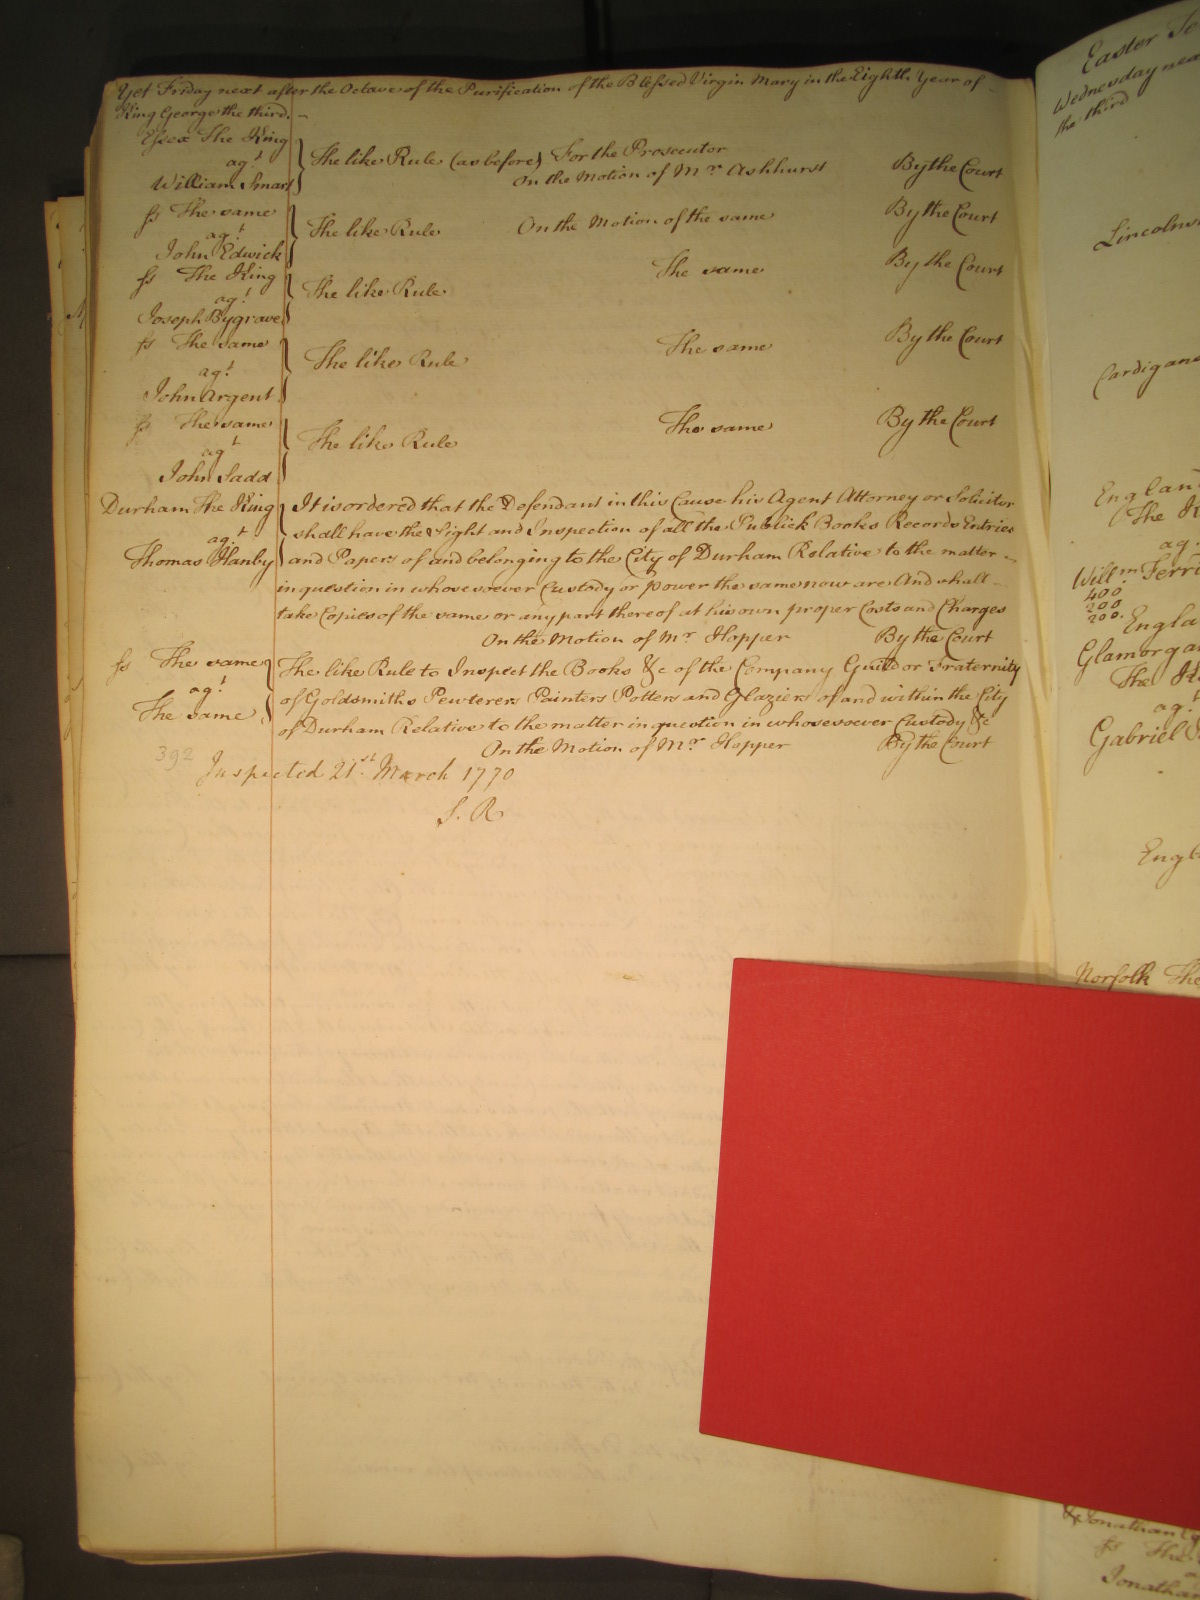 Yet Friday next after the Octave of the Purification of the Blessed Virgin Mary in the Eighth Year of
King George the third.
Essex The King
agt
William Smart
The like Rule (as before) For the Prosecutor
On the Motion of Mr Ashhurst
By the Court
ss The same
agt
John Edwick
The like Rule
On the Motion of the same
By the Court
ss The King
agt
Joseph Bygrave
The like Rule
The same
By the Court
ss The same
agt
John Argent
The like Rule
The same
By the Court
ss The same
agt
John Sadd
The like Rule
The same
By the Court
Durham The King
agt
Thomas Hanby
It is ordered that the Defendant in this Cause his Agent Attorney or Solicitor
shall have the Sight and Inspection of all the Publick Books Records Entries
and Papers of and belonging to the City of Durham Relative to the matter
in question in whosesoever Custody or power the same now are And shall
take Copies of the same or any part thereof at his own proper Costs and Charges
On the Motion of Mr Hopper By the Court
ss The same
agt
The same
The like Rule to Inspect the Books &c of the Company Guild or Fraternity
of Goldsmiths Pewterers Painters Potters and Glaziers of and within the City
of Durham Relative to the matter in question in whosesoever Custody &c
On the Motion of Mr Hopper By the Court
392
Inspected 21st March 1770
S. R
Easter
Wednesday
the third
England
The
ag
Willm
400
200
200.
The
ag
Gabriel
Norfolk The
ss The